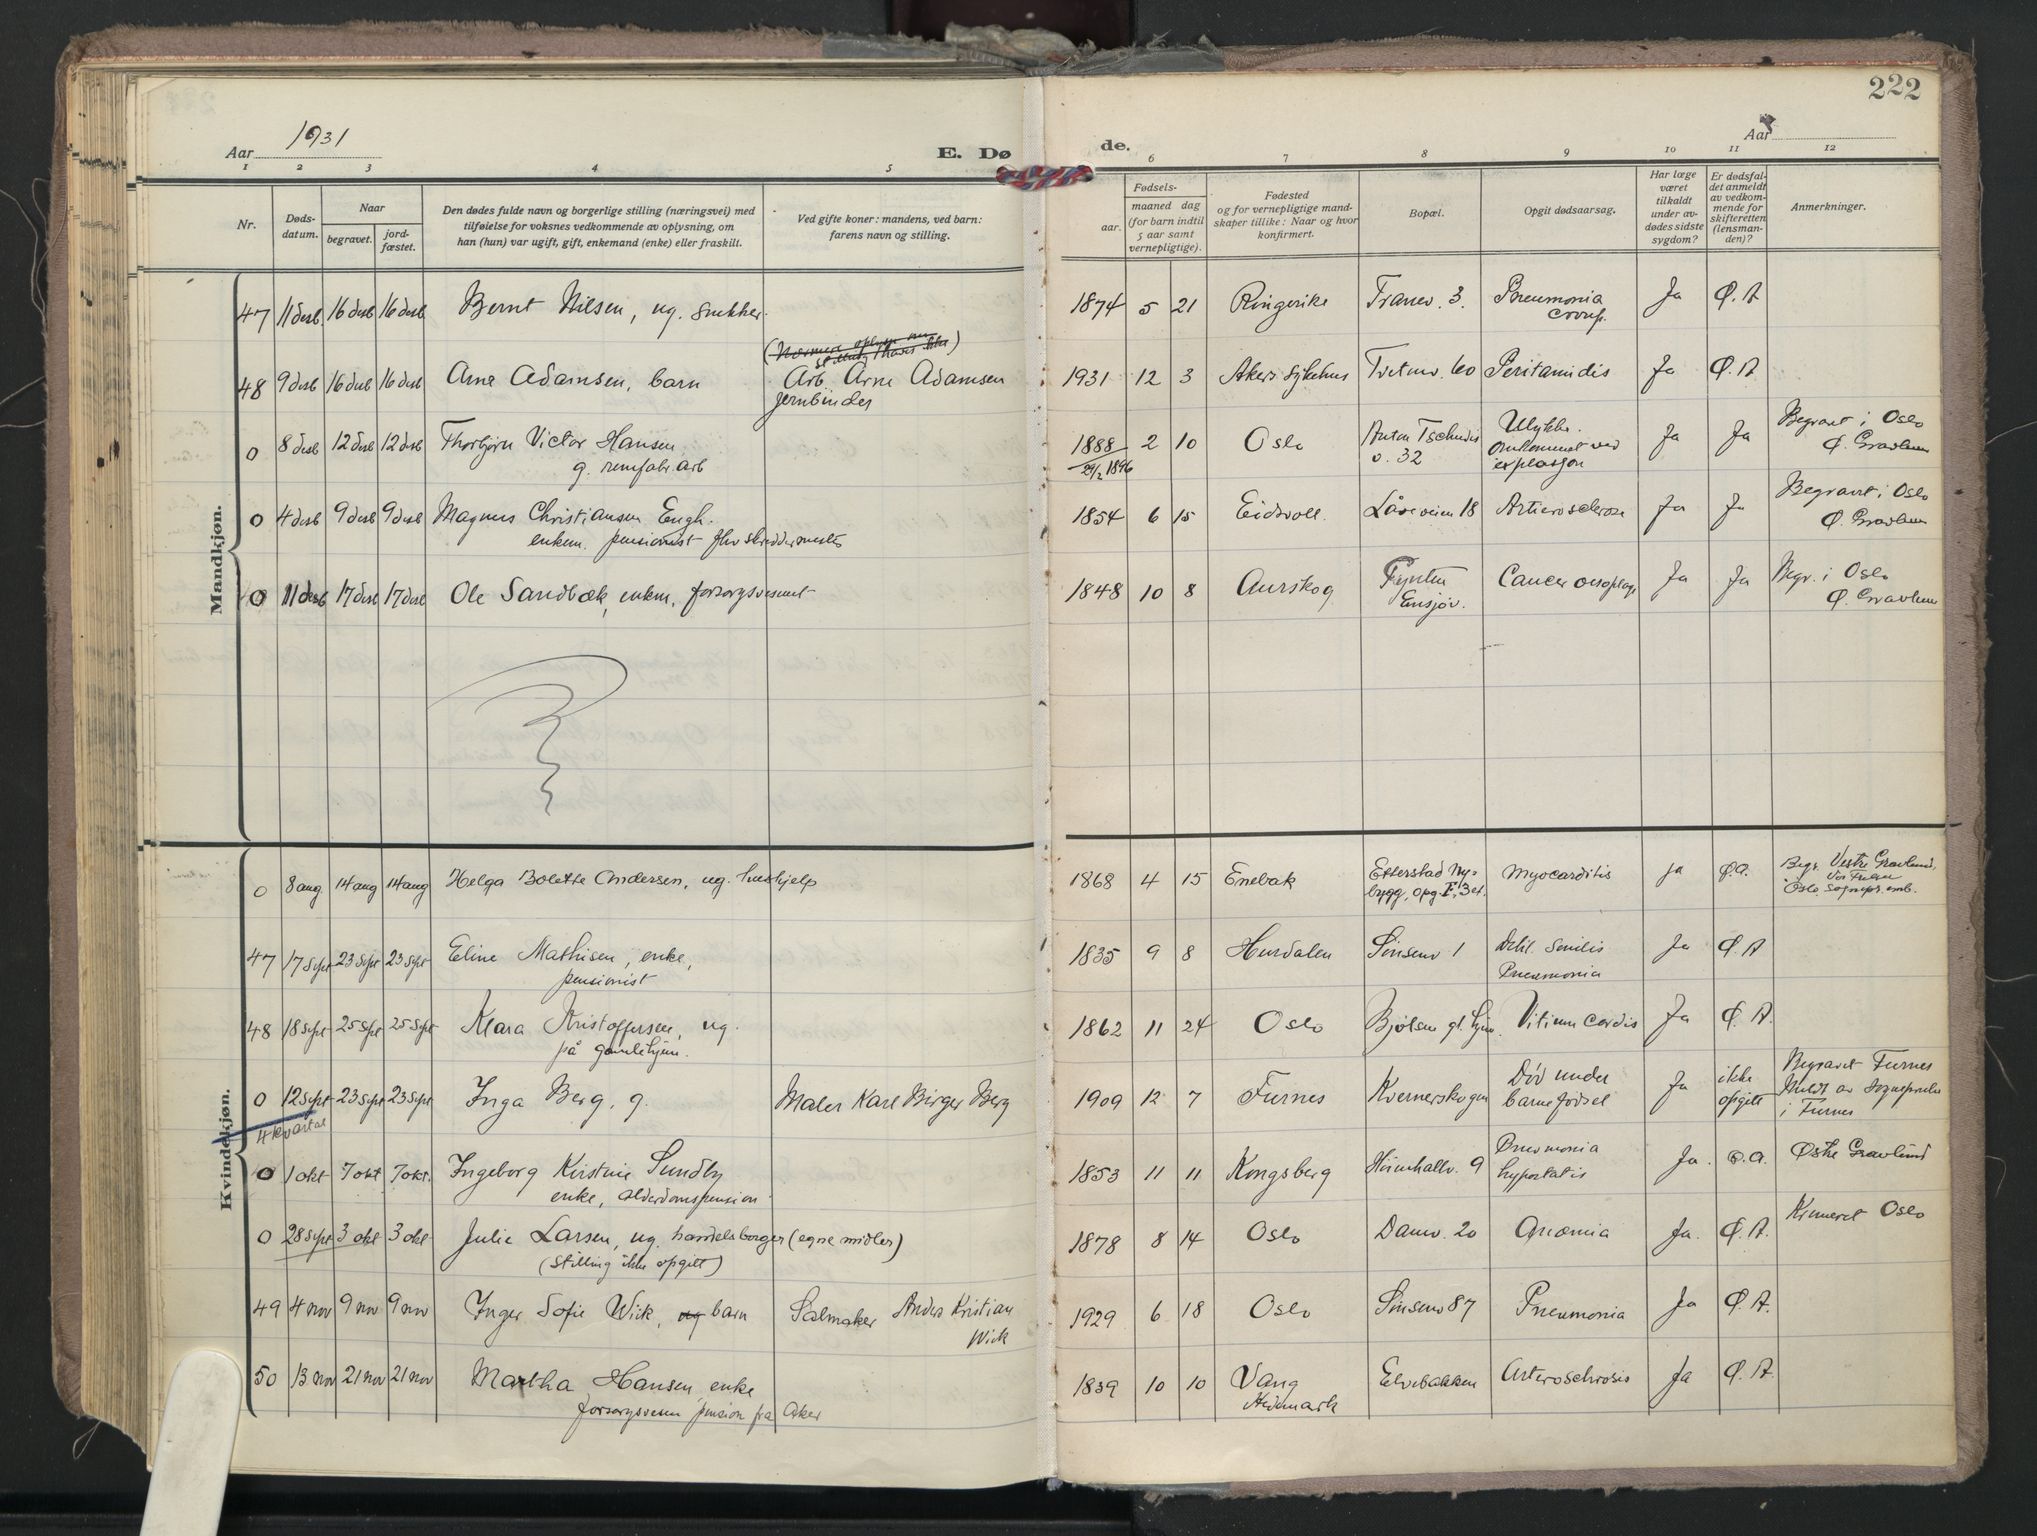 222
Aar 1931
E. Dø
de.
Aar
1 2 3 4 5 6 7 8 9 10 11 12
Nr.
Døds-
datum.
Naar
begravet.
jord-
fæstet.
Den dødes fulde navn og borgerlige stilling (næringsvei) med
tilføielse for voksnes vedkommende av oplysning, om
han (hun) var ugift, gift, enkemand (enke) eller fraskilt.
Ved gifte koner: mandens, ved barn:
farens navn og stilling.
Fødsels-
aar.
maaned dag
(for barn indtil
5 aar samt
vernepligtige).
Fødested
og for vernepligtige mand-
skaper tillike: Naar og hvor
konfirmert.
Bopæl.
Opgit dødsaarsag.
Har læge
været
tilkaldt
under av-
dødes sidste
sygdom?
Er dødsfal-
det anmeldt
av vedkom-
mende for
skifteretten
(lensman-
den)?
Anmerkninger.
Mandkjøn.
47 11 desb 16 desb 16 desb Bernt Nilsen, ug. snekker. 1874 5 21 Ringerike Tranev. 3. Pneumonia Ja Ø. A
croup.
48 9 desb 16 desb 16 desb Arne Adamsen, barn Arb. Arne Adamsen 1931 12 3 Akers sykehus Tvetenv. 60 Peritonidis Ja Ø. A
jernbinder
0 8 desb 12 desb 12 desb Thorbjørn Victor Hansen 1888 2 10 Oslo Anton Tschudis Ulykke. Ja Ja Begravet i Oslo
g. remfabr. arb 29/2 1896 v. 32 Omkommet ved Ø. Gravlun
explosjon
0 4 desb 9 desb 9 desb Magnus Christiansen Engh. 1854 6 15 Eidsvoll. Låveveien 18 Arterosclerose Ja Ja Begravet i Oslo
enkem. pensionist fhv skreddermester Ø. Gravlun
0 11 desb 17 desb 17 desb Ole Sandbæk, enkm, forsorgsvesent 1848 10 8 Aurskog Fyrsten Cancer oesophag Ja Ja Begr. i Oslo
Ensjøv. Ø. Gravlun
Kvindekjøn.
0 8 aug 14 aug 14 aug Helga Bolette Andersen, ug. hushjelp 1868 4 15 Enebak Etterstad Ny- Myocarditis ja Ø.A. Begr. Vestre Gravlund,
bygg, opg. F. 3 et. Vor Frelser
Oslo. Sognepr. emb.
47 17 sept 23 sept 23 sept Eline Mathisen, enke, 1835 9 8 Hurdalen Sinsenv 1 Debil. Senilis Ja Ø. A
pensionist Pneumonia
48 18 sept 25 sept 25 sept Klara Kristoffersen, ug. 1862 11 24 Oslo Bjølsen gl. hjem. Vitium Cordis Ja Ø. A.
på gamlehjem.
0 12 sept 23 sept 23 sept Inga Berg, g. Maler Karl Birger Berg 1909 12 7 Furnes Kvernerskogen Død under Ja ikke Begravet Furnes
barnefødsel opgitt Meldt av Sogneprest
i Furnes
4 kvartal
0 1 okt 7 okt 7 okt. Ingeborg Kirstine Sundby 1853 11 11 Kongsberg Heimhallv. 9 Pneumonia Ja. Ø.A. Østre Gravlund
enke, alderdomspension hypostatis
0 28 sept 3 okt 3 okt Julie Larsen, ug. handelsborger (egne midler) 1878 8 14 Oslo Damv. 20 Anæmia Ja. Ø. A. Kremeret Oslo
(stilling ikke opgitt)
49 4 nov 9 nov 9 nov Inger Sofie Wiik, ug barn Salmaker Anders Kristian 1929 6 18 Oslo Sinsenv 87 Pneumonia Ja Ø. A.
Wiik
50 13 nov 21 nov 21 nov Martha Hansen, enke 1839 10 10 Vang Elvebakken Arterosclrosis Ja Ø. A.
forsorgsvesen pension fra Aker Hedmark